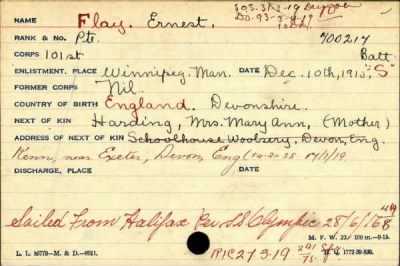 593-31-3-19
Do. 93-
NAME Flay. Ernest.
RANK & No. Pte. 700217
CORPS 101st Batt.
ENLISTMENT, PLACE Winnipeg. Man. DATE Dec. 10th, 1915. "S"
FORMER CORPS Nil.
COUNTRY OF BIRTH England. Devonshire.
NEXT OF KIN Harding, Mrs. Mary Ann, (Mother)
ADDRESS OF NEXT OF KIN Schoolhouse Woolsery, Devon, Eng.
Kenn, near Exeter, Devon, Eng
DISCHARGE, PLACE DATE
Sailed From Halifax Per SS Olympic 28/6/16
M. F. W. 22.
L. L. 80779—M. & D.—6611. H. Q. 1772-39-830.